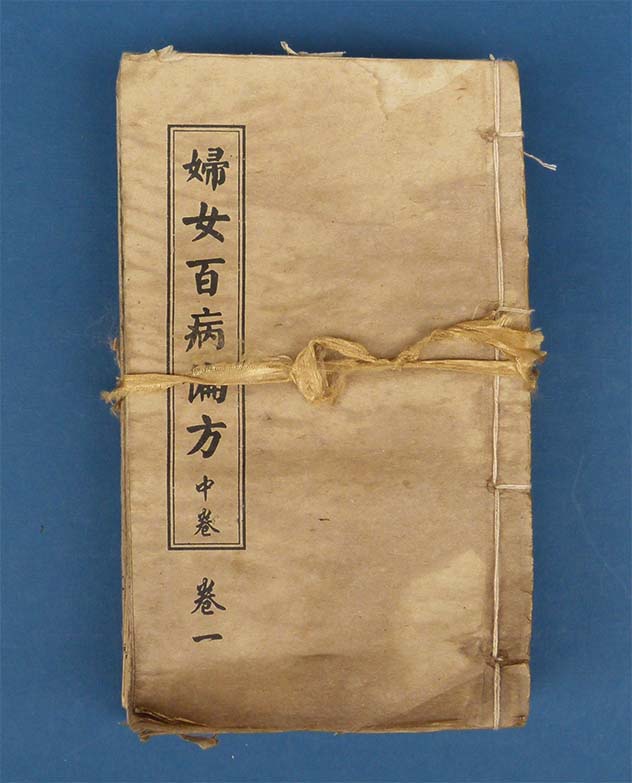 婦女百病偏方中卷
卷一